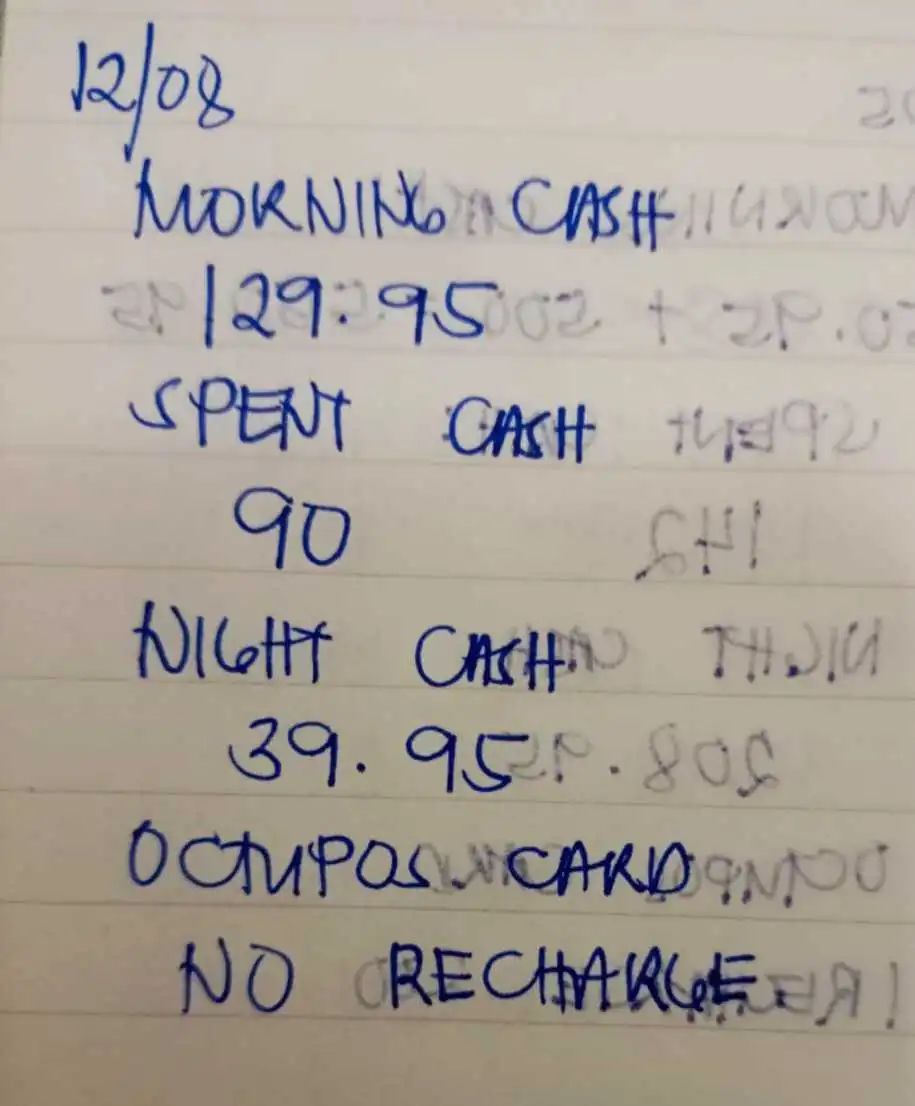 12/08
MORNING CASH
129.95
SPENT CASH
90
NIGHT CASH
39.95
OCTUPOS CARD
NO RECHARGE